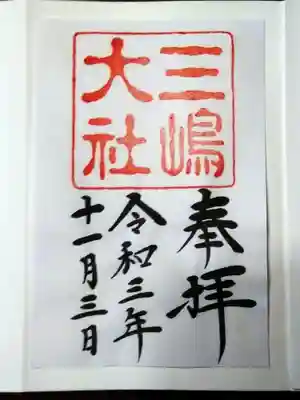 三嶋
大社
奉拝
令和三年
十一月三日